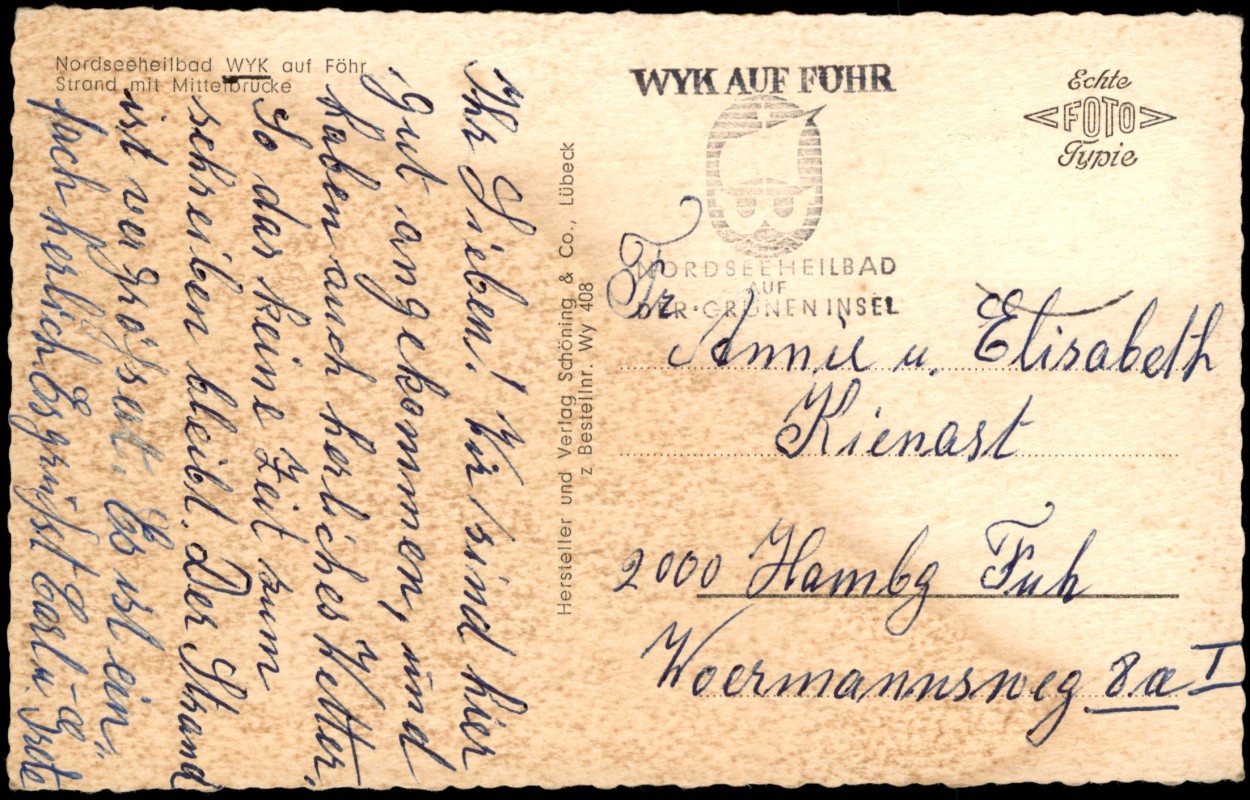 Nordseeheilbad WYK auf Föhr
Strand mit Mittelbrücke
Ihr Lieben! Wir sind hier
gut angekommen, und
haben auch herliches Wetter,
So das keine Zeit zum
schreiben bleibt. Der Strand
ist vergrößert. Es ist ein-
fach herlich Es grüßt Carl u. Grete
Hersteller und Verlag Schöning & Co., Lübeck
z Bestellnr. Wy 408
WYK AUF FÖHR
NORDSEEHEILBAD
AUF
DER·GRÜNEN INSEL
Echte
FOTO
Typie
Fr.
Annie u. Elisabeth
Kienast
2000 Hambg Fuh
Woermannsweg 8a I